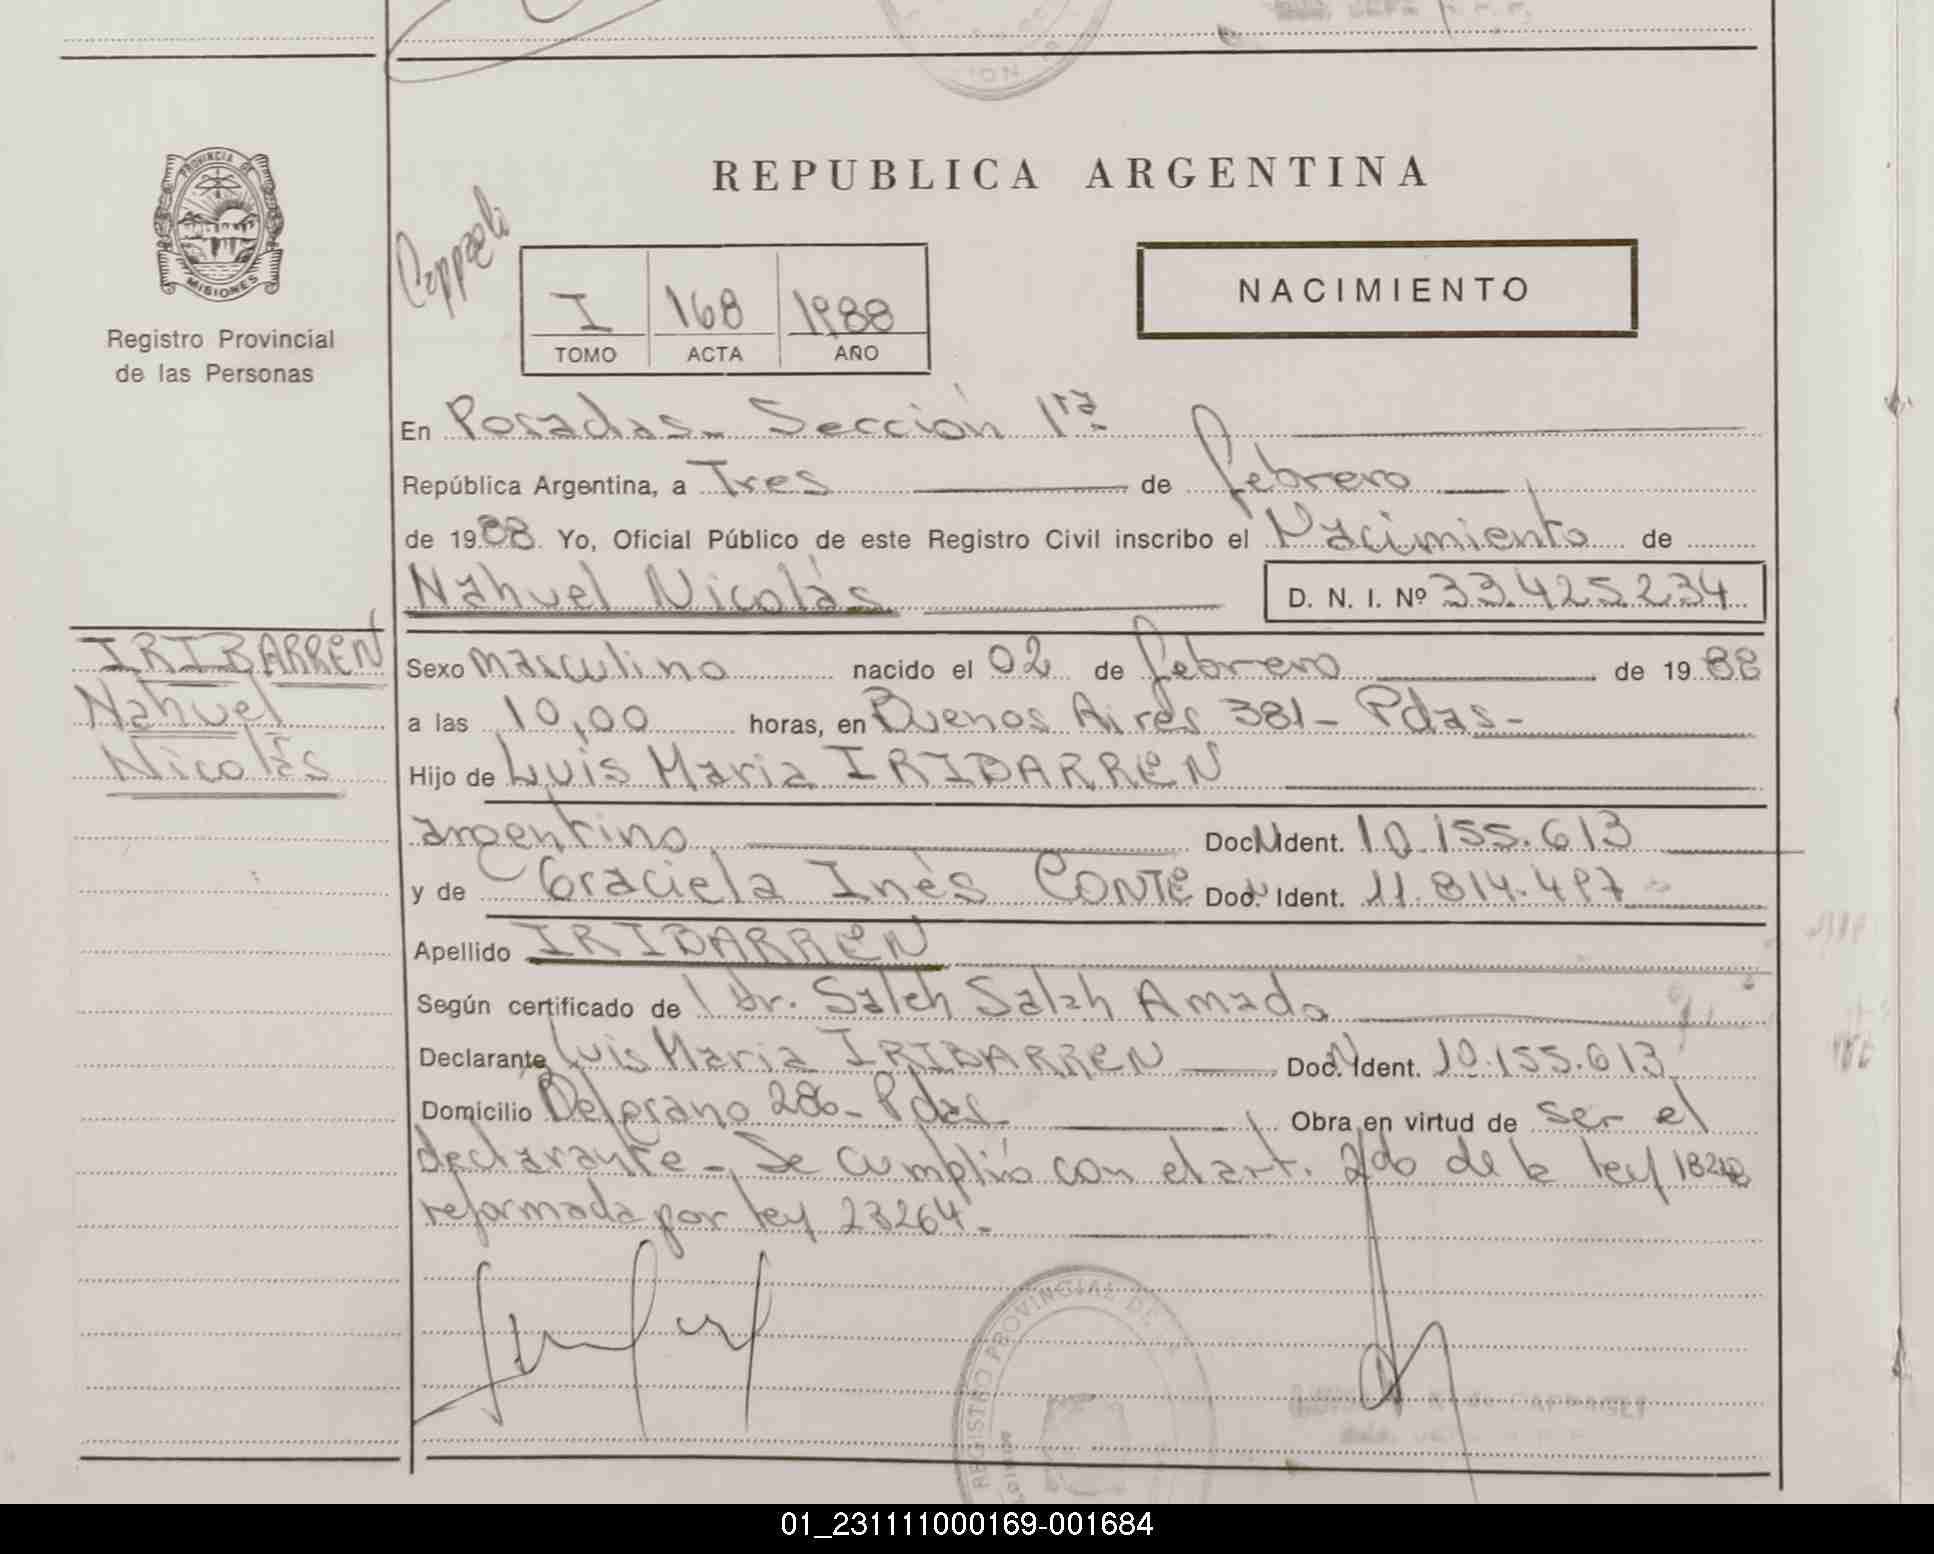 REPUBLICA ARGENTINA
PROVINCIA DE
MISIONES
Registro Provincial
de las Personas
I 168 1988
TOMO ACTA AÑO
NACIMIENTO
En Posadas - Sección 1ra.
República Argentina, a Tres de febrero
de 1988. Yo, Oficial Público de este Registro Civil inscribo el Nacimiento de
Nahuel Nicolás D. N. I. Nº 33.425.234
IRIBARREN
Nahuel
Nicolás
Sexo masculino nacido el 02 de febrero de 1988
a las 10,00 horas, en Buenos Aires 381 - Pdas -
Hijo de Luis Maria IRIBARREN
argentino Doc. Ident. 10.155.613
y de Graciela Inés CONTE Doc. Ident. 11.814.497
Apellido IRIBARREN
Según certificado de Dr. Saleh Salah Amado
Declarante Luis Maria IRIBARREN Doc. Ident. 10.155.613
Domicilio Belgrano 286 - Pdas Obra en virtud de ser el
declarante - Se cumplió con el art. 2do de la ley
reformada por ley 23264 -
REGISTRO PROVINCIAL DE
01_231111000169-001684